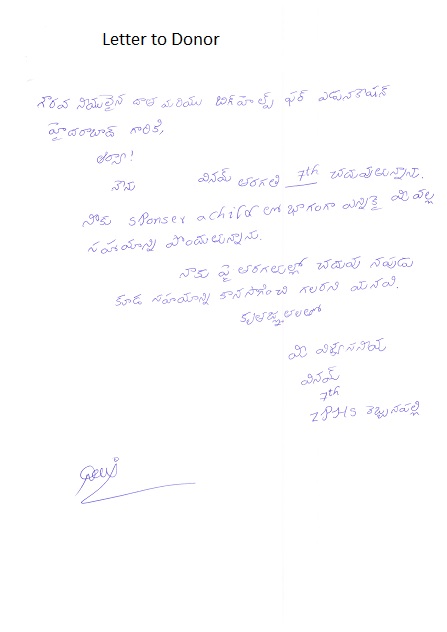 Letter to Donor
గౌరవ నీయులైన దాత మరియు బిగ్ హెల్ప్ ఫర్ ఎడ్యుకేషన్
హైదరాబాద్ గారికి,
ఆర్యా!
నేను వినయ్ తరగతి 7th చదువుతున్నాను.
నాకు sponser a child లో భాగంగా ఎన్నికై మీ వల్ల
సహాయాన్ని పొందుతున్నాను.
నాకు పై తరగతుల్లో చదువు నపుడు
కూడ సహయాన్ని కొనసాగించ గలరని మనవి.
కృతజ్ఞతలతో
మీ విశ్వసనీయ
వినయ్
7th
ZPHS